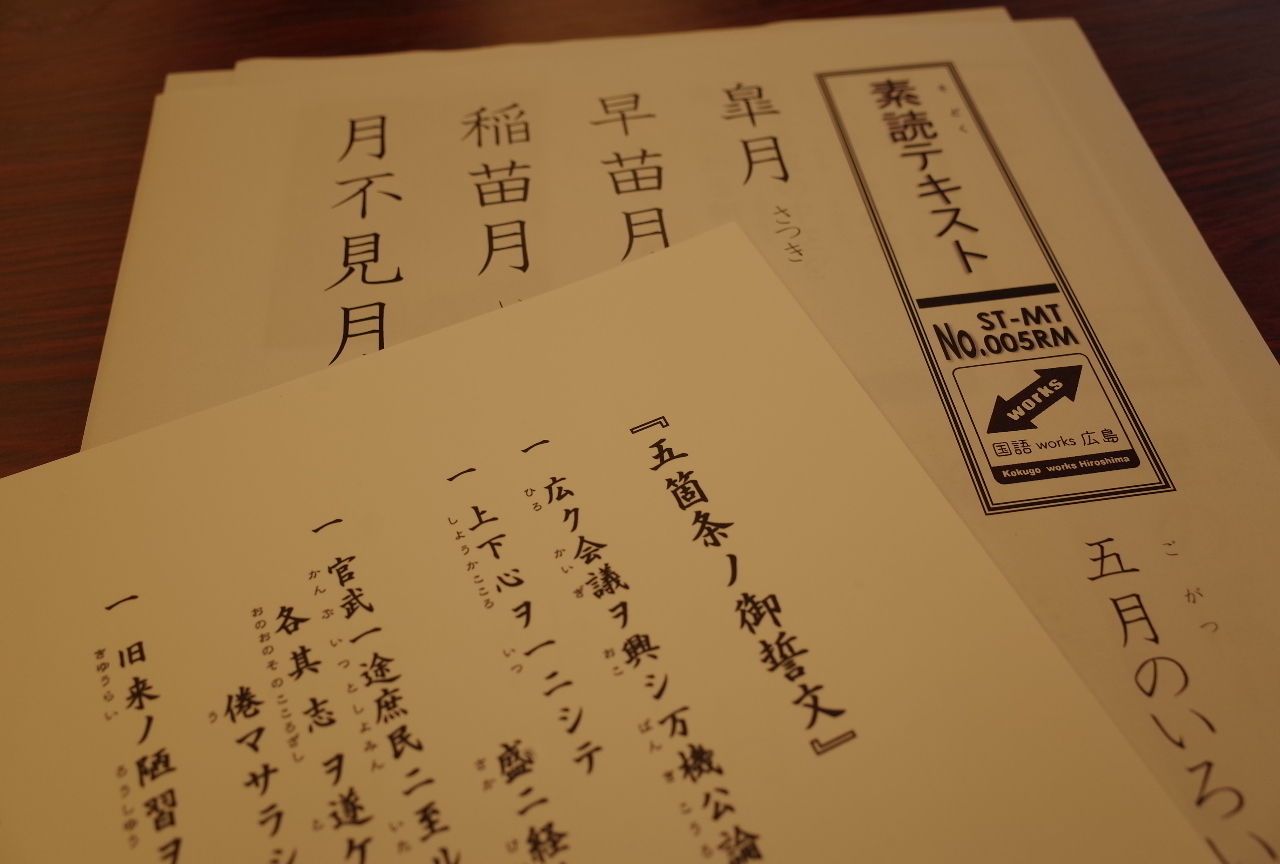 素読テキスト
そどく
ST-MT
No.005RM
works
国語 works 広島
Kokugo works Hiroshima
五月のいろい
ごがつ
皐月 さつき
早苗月
稲苗月 い
月不見月
『五箇条ノ御誓文』
一 広ク会議ヲ興シ万機公論
ひろ かいぎ おこ ばんきこうろ
一 上下心ヲ一ニシテ
しようかこころ いつ
盛ニ経
さか け
一 官武一途庶民ニ至ル
かんぶいつとしよみん いた
各其志ヲ遂ケ
おのおのそのこころざし と
倦マサラシ
う
一 旧来ノ陋習ヲ
きゆうらい ろうしゆう